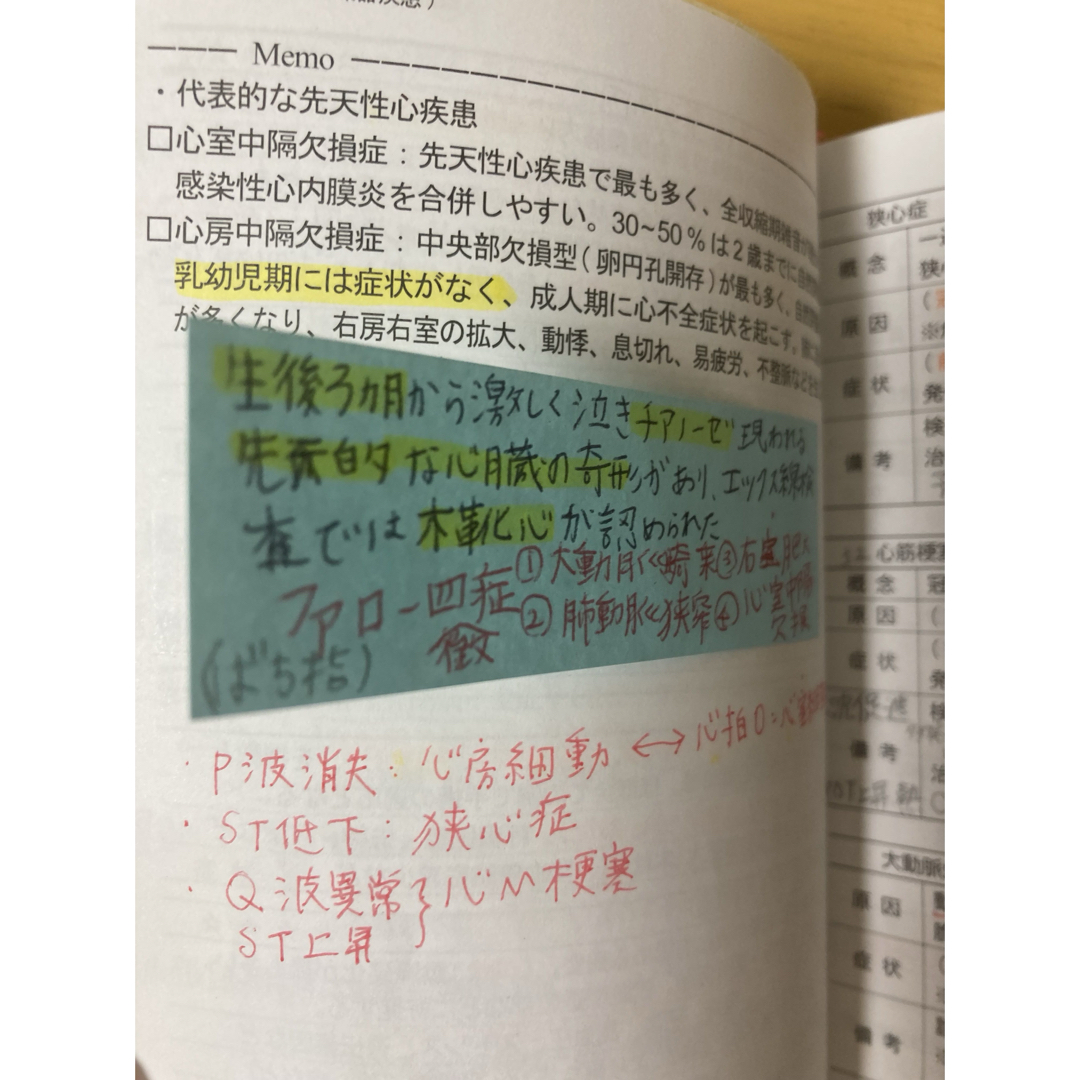 Memo
・代表的な先天性心疾患
□心室中隔欠損症：先天性心疾患で最も多く、全収縮期雑音が
感染性心内膜炎を合併しやすい。30~50％は2歳までに自然
□心房中隔欠損症：中央部欠損型(卵円孔開存)が最も多く。自然
乳幼児期には症状がなく、成人期に心不全症状を起こす。
が多くなり、右房右室の拡大、動悸、息切れ、易疲労、不整脈など
生後3カ月から激しく泣きチアノーゼ現われる
先天的な心臓の奇形があり、エックス線検
査では木靴心が認められた
ファロー四症
徴
(ばち指)
①大動脈騎乗③右室肥大
②肺動脈狭窄④心室中隔
欠損
・P波消失：心房細動 ↔ 心拍0=心室
・ST低下：狭心症
・Q波異常 } 心M梗塞
ST上昇
狭心症
概念
原因
症状
備考
心筋梗塞
概念 冠
原因
症状
備考
大動脈
原因
症状
備考